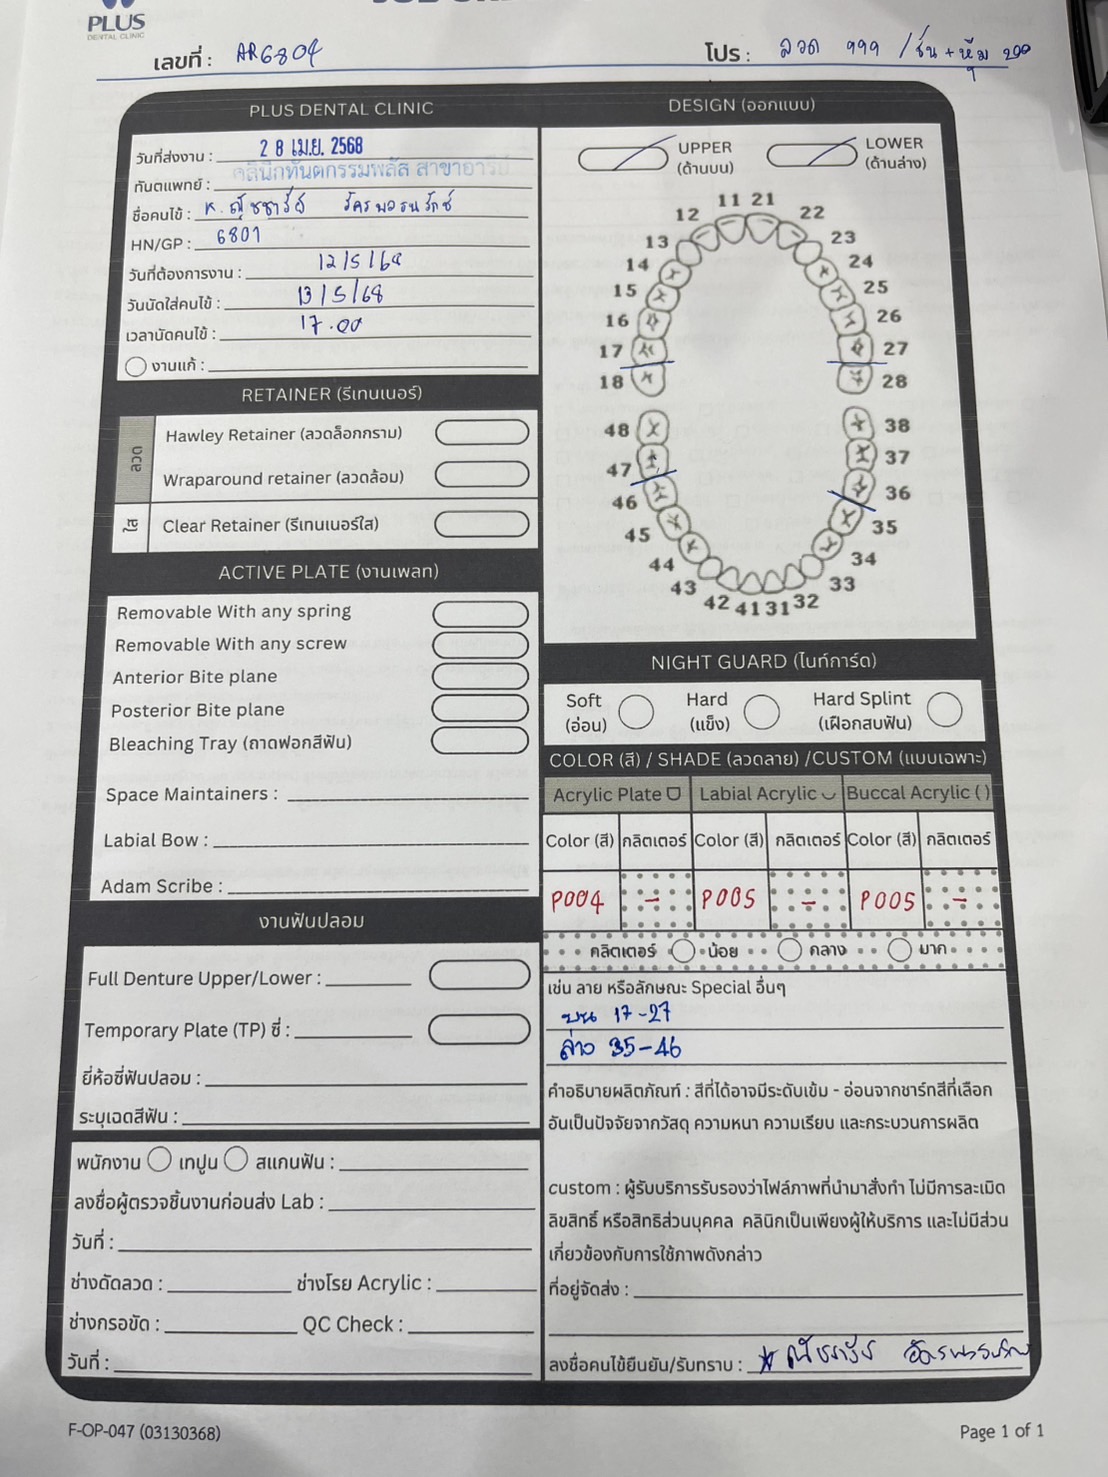 PLUS
DENTAL CLINIC
เลขที่ : AR6804
โปร : ลวด 999 / ชิ้น + หุ้ม 200
PLUS DENTAL CLINIC
วันที่ส่งงาน : 28 เม.ย. 2568
ทันตแพทย์ : คลินิกทันตกรรมพลัส สาขาอารีย์
ชื่อคนไข้ : K.
HN/GP : 6801
วันที่ต้องการงาน : 12/5/68
วันนัดใส่คนไข้ : 13/5/68
เวลานัดคนไข้ : 17.00
งานแก้ :
RETAINER (รีเทนเนอร์)
ลวด
Hawley Retainer (ลวดล็อกกราม)
Wraparound retainer (ลวดล้อม)
ใส
Clear Retainer (รีเทนเนอร์ใส)
ACTIVE PLATE (งานเพลท)
Removable With any spring
Removable With any screw
Anterior Bite plane
Posterior Bite plane
Bleaching Tray (ถาดฟอกสีฟัน)
Space Maintainers :
Labial Bow :
Adam Scribe :
งานฟันปลอม
Full Denture Upper/Lower :
Temporary Plate (TP) ซี่ :
ยี่ห้อซี่ฟันปลอม :
ระบุเฉดสีฟัน :
พนักงาน เทปูน สแกนฟัน :
ลงชื่อผู้ตรวจชิ้นงานก่อนส่ง Lab :
วันที่ :
ช่างดัดลวด : ช่างโรย Acrylic :
ช่างกรอขัด : QC Check :
วันที่ :
DESIGN (ออกแบบ)
UPPER
(ด้านบน)
LOWER
(ด้านล่าง)
11 21
12 22
13 23
14 24
15 25
16 26
17 27
18 28
48 38
47 37
46 36
45 35
44 34
43 33
42 41 31 32
NIGHT GUARD (ไนท์การ์ด)
Soft
(อ่อน)
Hard
(แข็ง)
Hard Splint
(เฝือกสบฟัน)
COLOR (สี) / SHADE (ลวดลาย) /CUSTOM (แบบเฉพาะ)
Acrylic Plate Labial Acrylic Buccal Acrylic ( )
Color (สี) กลิตเตอร์ Color (สี) กลิตเตอร์ Color (สี) กลิตเตอร์
P004 - P005 - P005 -
กลิตเตอร์ น้อย กลาง มาก
เช่น ลาย หรือลักษณะ Special อื่นๆ
บน 17-27
ล่าง 35-46
คำอธิบายผลิตภัณฑ์ : สีที่ได้อาจมีระดับเข้ม - อ่อนจากชาร์ทสีที่เลือก
อันเป็นปัจจัยจากวัสดุ ความหนา ความเรียบ และกระบวนการผลิต
custom : ผู้รับบริการรับรองว่าไฟล์ภาพที่นำมาสั่งทำ ไม่มีการละเมิด
ลิขสิทธิ์ หรือสิทธิส่วนบุคคล คลินิกเป็นเพียงผู้ให้บริการ และไม่มีส่วน
เกี่ยวข้องกับการใช้ภาพดังกล่าว
ที่อยู่จัดส่ง :
ลงชื่อคนไข้ยืนยัน/รับทราบ :
F-OP-047 (03130368)
Page 1 of 1